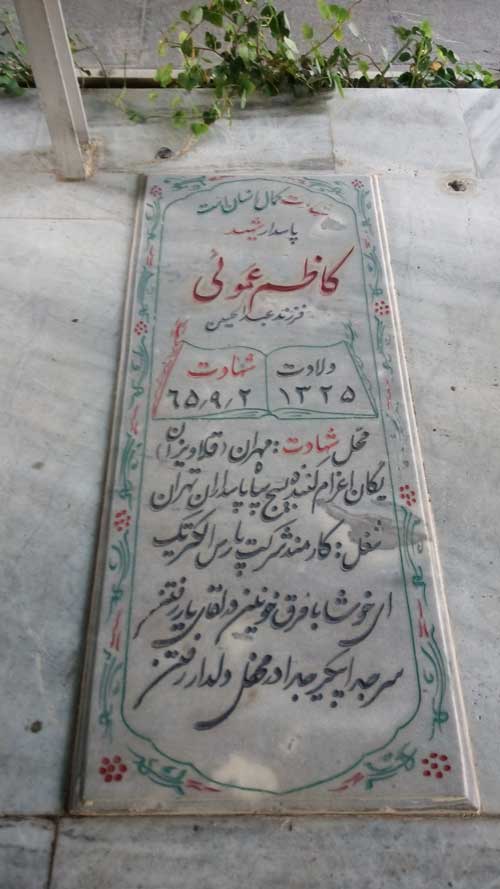 شهادت کمال انسان است
پاسدار شهید
کاظم عموئی
فرزند عبدالحسین
ولادت شهادت
۱۳۲۵ ۶۵/۹/۲
محل شهادت : مهران (قلاویزان)
یگان اعزام کننده بسیج سپاه پاسداران تهران
شغل : کارمند شرکت پارس الکتریک
ای خوشا با فرق خونین در لقای یار رفتن
سر جدا پیکر جدا در محفل دلدار رفتن